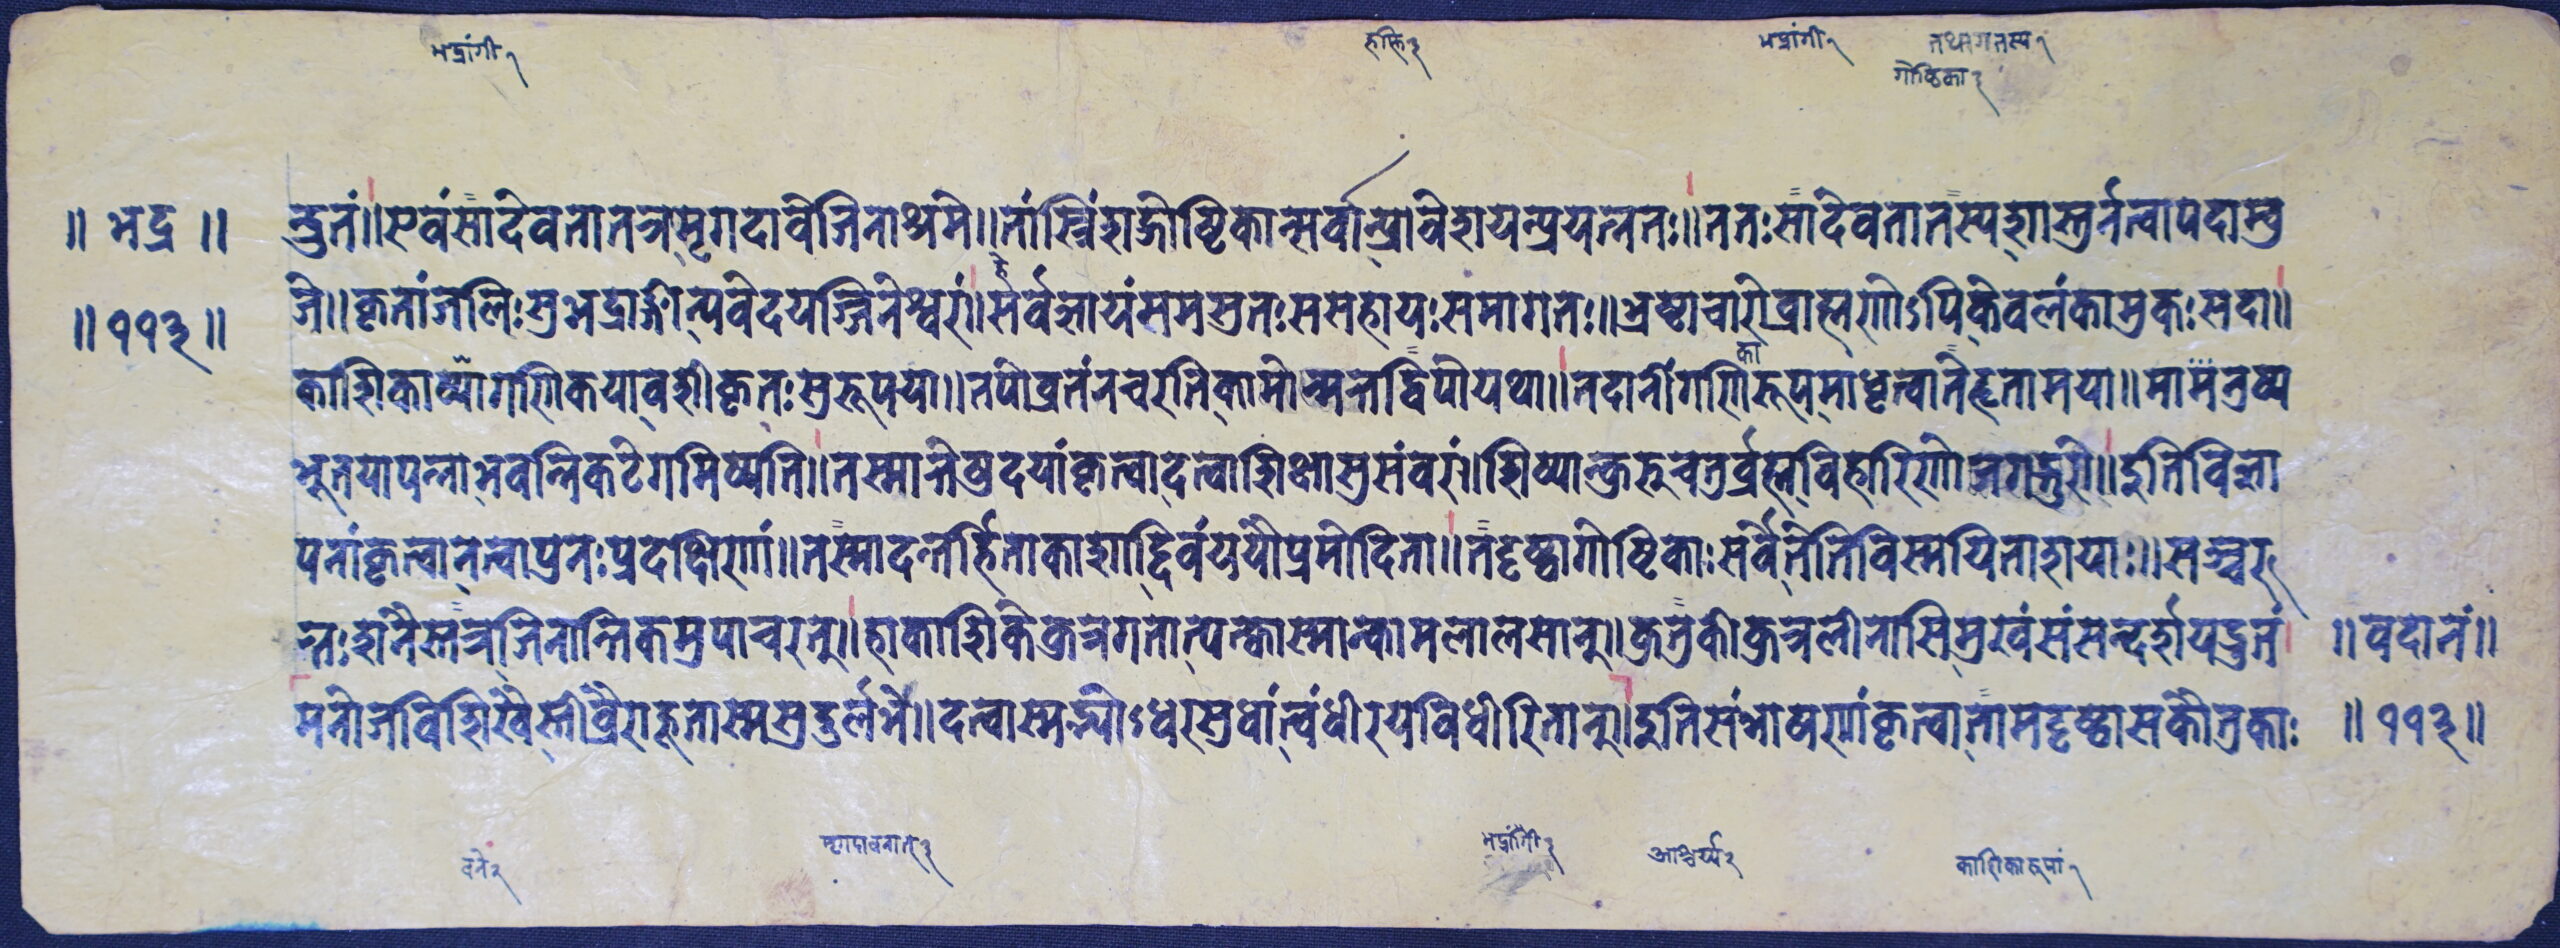 भद्रांगी १
हस्ति ३
भद्रांगी १
तथागतस्य १
गोष्ठिका २
॥ भद्र ॥
न्द्रुतं॥ एवं सा देवता तत्र मृगदावे जिनाश्रमे॥ तांस्त्रिंशद्गोष्ठिकान्सर्वान्प्रावेशयन्प्रयत्नतः॥ ततः सा देवता तस्य शास्तुर्नत्वा पदाम्बु
॥ ११३ ॥
जे॥ कृतांजलिः सुभद्राङ्गी न्यवेदयज्जिनेश्वरं॥ सर्वज्ञायं समस्रुतः ससहायः समागतः॥ भ्रष्टाचारो ब्राह्मणोऽपि केवलं कामुकः सदा॥
काशिकाख्या गणिकया वशीकृतः सुरूपया॥ तपोव्रतं न चरति कामोन्मत्तद्विपो यथा॥ तदानीं गणिकारूपमाधृत्वा ते हृता मया॥ मामनुष्य
भूतयापन्ना भवन्निकटे गमिष्यति॥ तस्मात्तेषु दयां कृत्वा दत्वा शिक्षासु संवरं॥ शिष्यान्कुरु चतुर्ब्रह्मविहारिणो जगद्गुरो॥ इति विज्ञा
पनां कृत्वा नत्वा पुनः प्रदक्षिणां॥ तस्मादन्तर्हिताकाशाद्दिवं ययौ प्रमोदिता॥ तं दृष्ट्वा गोष्ठिकाः सर्वे तेति विस्मयिताशयाः॥ सञ्चर
न्तः शनैस्तत्र जिनान्तिकमुपाचरन्॥ हा काशिके कुत्र गता त्यक्त्वास्मान्कामलालसान्॥ कुतुकी कुत्र लीनासि मुखं संसन्दर्शय द्रुतं
॥ वदानं ॥
मनोजविशिखैस्तीव्रैराहृतास्म सुदुर्लभे॥ दत्वास्मभ्योऽधरसुधां त्वं धीरय विधीरितान्॥ इति संभाषणं कृत्वा तामदृष्ट्वा सकौतुकाः
॥ ११३ ॥
वने २
मृगदावनात् ३
भद्रांगी ३
आश्चर्य्य २
काशिकारूपां १